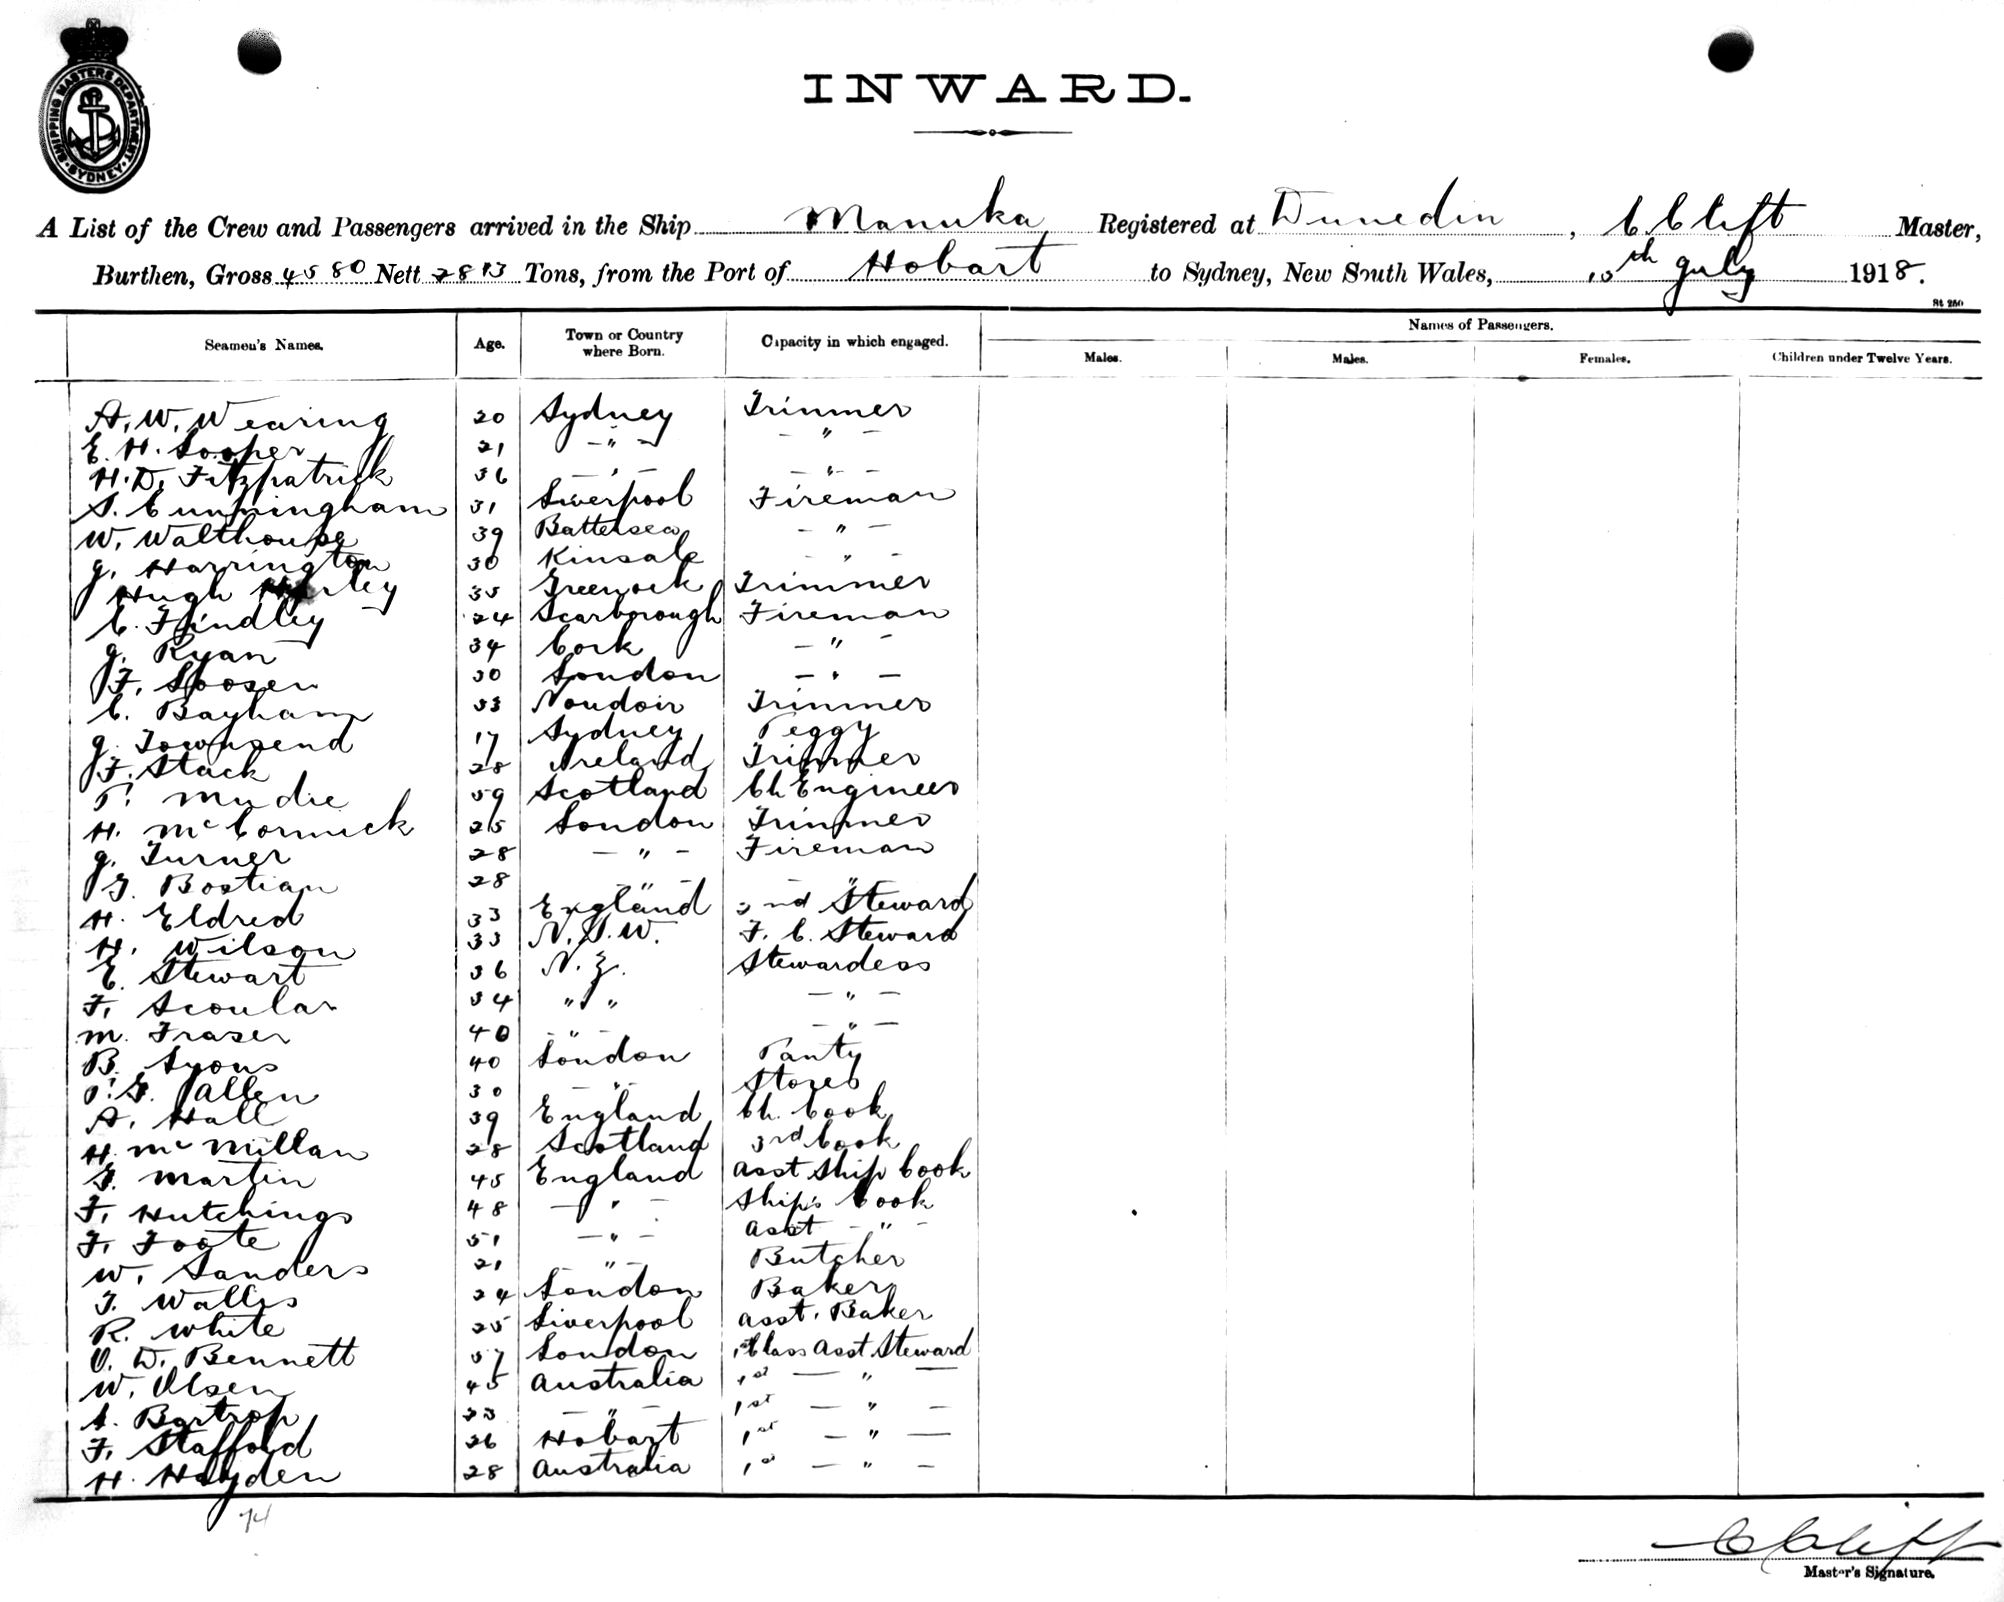 SHIPPING MASTERS DEPARTMENT. SYDNEY
INWARD.
A List of the Crew and Passengers arrived in the Ship Manuka Registered at Dunedin, C Clift Master,
Burthen, Gross 4580 Nett Tons, from the Port of Hobart to Sydney, New South Wales, 10th July 1918.
St 250
Seamen's Names. Age. Town or Country where Born. Capacity in which engaged. Names of Passengers.
Males. Males. Females. Children under Twelve Years.
A. W. Wearing 20 Sydney Trimmer
E. H. Looper 21 - " - - " -
H. D. Fitzpatrick 36 - " - - " -
S. Cunningham 31 Liverpool Fireman
W. Walthouse 39 Battersea - " -
J. Harrington 30 Kinsale - " -
Hugh 35 Greenock Trimmer
C. Findley 24 Scarborough Fireman
J. Ryan 34 Cork - " -
F. Loosen 30 London - " -
C. Bayham 33 Trimmer
J. Townsend 17 Sydney Peggy
F. Stack 28 Ireland Trimmer
P. Mudie 59 Scotland Ch Engineer
H. McCormick 25 London Trimmer
J. Turner 28 - " - Fireman
G. Bostian 28 - " - "
H. Eldred 33 England 2nd Steward
H. Wilson 33 N.S.W. F. C. Steward
E. Stewart 36 N.Z. Stewardess
F. Scoular 34 " " - " -
M. Fraser 40 - " - - " -
B. Lyons 40 London Panty
P. G. Allen 30 - " - Stores
A. Hall 39 England Ch. Cook
H. McMillan 28 Scotland 3rd Cook
G. Martin 45 England Asst Ship Cook
F. Hutchings 48 - " - Ship's Cook
F. Foote 51 - " - Asst - " -
W. Sanders 21 - " - Butcher
J. Wallis 24 London Baker
R. White 25 Liverpool Asst. Baker
O. W. Bennett 37 London 1st Class Asst Steward
W. Olsen 45 Australia 1st - " -
A. Bartrop 23 - " - 1st - " -
F. Stafford 26 Hobart 1st - " -
H. Hayden 28 Australia 1st - " -
74
C Clift
Master's Signature.